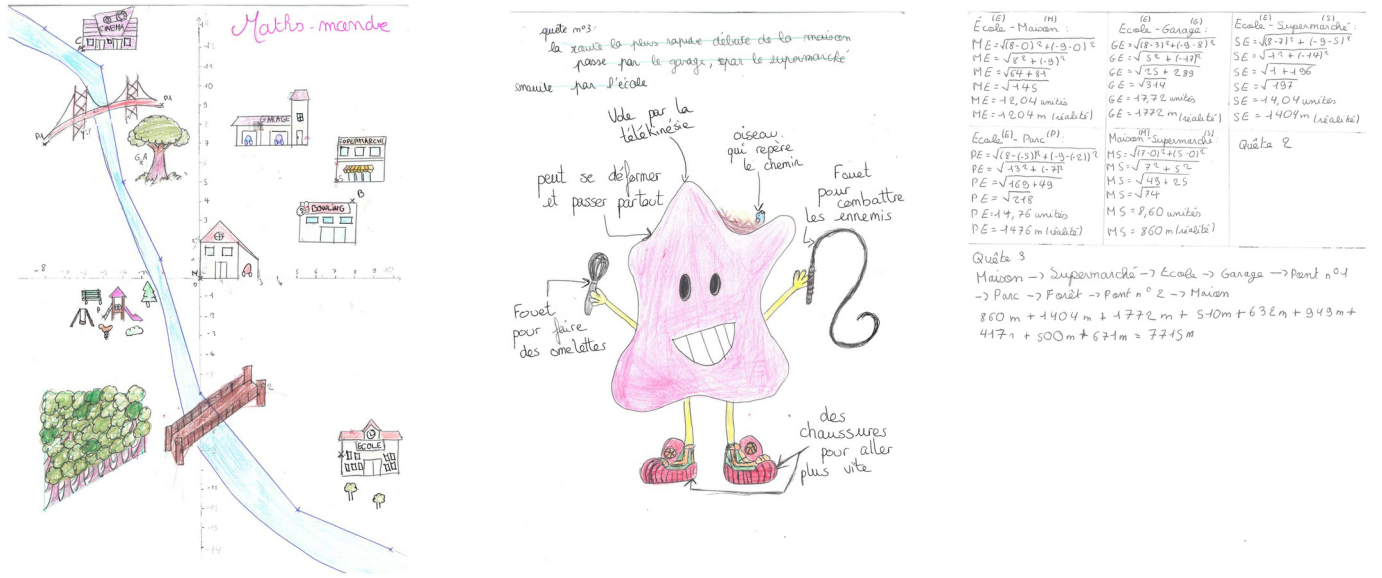 Maths-mandre
CINEMA
GARAGE
SUPERMARCHE
BOWLING
ECOLE
P1
P1
G A
B
N
-8
3
4
5
6
7
8
9
quête n°3:
la route la plus rapide débute de la maison
passe par le garage, par le supermarché
ensuite par l'école
Vole par la
télékinésie
oiseau
qui repère
le chemin
peut se déformer
et passer partout
Fouet
pour
combattre
les ennemis
Fouet
pour faire
des omelettes
des
chaussures
pour aller
plus vite
(E) (M)
École-Maison:
ME=√(8-0)²+(-9-0)²
ME=√8²+(-9)²
ME=√64+81
ME=√145
ME=12,04 unités
ME=1204 m (réalité)
(E) (G)
Ecole-Garage:
GE=√(8-3)²+(-9-8)²
GE=√5²+(-17)²
GE=√25+289
GE=√314
GE=17,72 unités
GE=1772 m (réalité)
(E) (S)
Ecole-Supermarché:
SE=√(8-7)²+(-9-5)²
SE=√1²+(-14)²
SE=√1+196
SE=√197
SE=14,04 unités
SE=1404m (réalité)
Ecole(E)-Parc(P):
PE=√(8-(-5))²+(-9-(-2))²
PE=√13²+(-7)²
PE=√169+49
PE=√218
PE=14,76 unités
PE=1476 m (réalité)
(M) (S)
Maison-Supermarché:
MS=√(7-0)²+(5-0)²
MS=√7²+5²
MS=√49+25
MS=√74
MS=8,60 unités
MS=860 m (réalité)
Quête 2
Quête 3
Maison → Supermarché → Ecole → Garage → Pont n°1
→ Parc → Forêt → Pont n°2 → Maison
860 m + 1404 m + 1772 m + 510m + 632m + 949m +
417m + 500m + 671m = 7715m